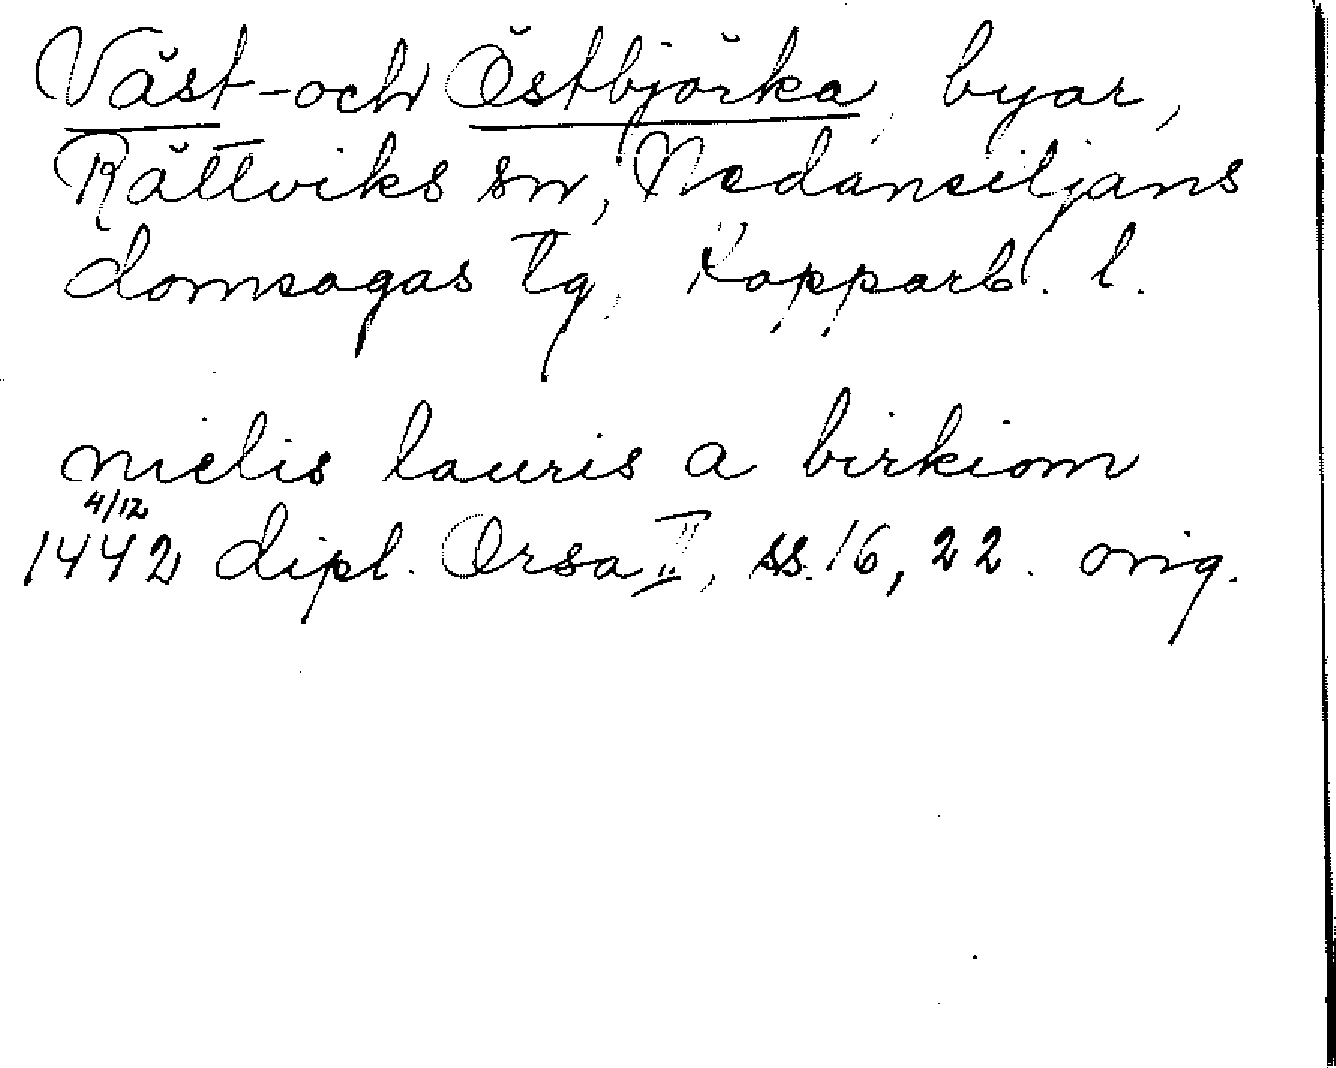 Väst- och Östbjörka, byar,
Rättviks sn, Nedansiljans
domsagas tg, Kopparb. l.
nielis lauris a birkiom
4/12
1442 dipl. Orsa II, ss. 16, 22. orig.